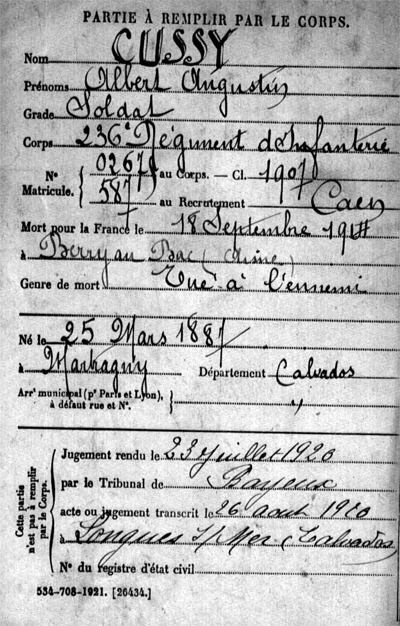 PARTIE À REMPLIR PAR LE CORPS.
Nom CUSSY
Prénoms Albert Augustin
Grade Soldat
Corps 236e Régiment d'Infanterie
N° Matricule. { 02678 au Corps. — Cl. 1907
587 au Recrutement Caen
Mort pour la France le 18 Septembre 1914
à Berry au Bac (Aisne)
Genre de mort Tué à l'ennemi
Né le 25 Mars 1887
à Martragny Département Calvados
Arrt municipal (pr Paris et Lyon), à défaut rue et N°. } "
Cette partie n'est pas à remplir par le Corps.
Jugement rendu le 23 juillet 1920
par le Tribunal de Bayeux
acte ou jugement transcrit le 26 août 1920
à Longues s/Mer (Calvados)
N° du registre d'état civil
534-708-1921. [26434.]